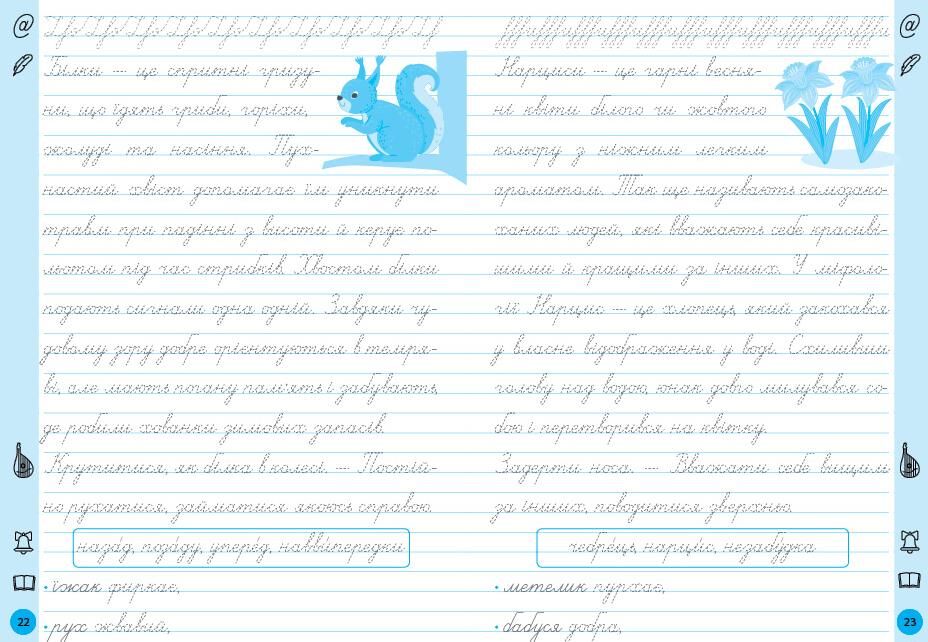 Білки — це спритні гризу-
ни, що їдять гриби, горіхи,
жолуді та насіння. Пух-
настий хвіст допомагає їм уникнути
травм при падінні з висоти й керує по-
льотом під час стрибків. Хвостом білки
подають сигнали одна одній. Завдяки чу-
довому зору добре орієнтуються в темря-
ві, але мають погану пам'ять і забувають,
де робили схованки зимових запасів.
Крутитися, як білка в колесі. — Постій-
но рухатися, займатися якоюсь справою.
наза́д, поза́ду, упере́д, наввы́передки
• їжак фиркає,
• рух жвавий,
22
Нарциси — це гарні весня-
ні квіти білого чи жовтого
кольору з ніжним легким
ароматом. Так ще називають самозако-
ханих людей, які вважають себе красиві-
шими й кращими за інших. У міфоло-
гії Нарцис — це хлопець, який закохався
у власне відображення у воді. Схиливши
голову над водою, юнак довго милувався со-
бою і перетворився на квітку.
Задерти носа. — Вважати себе вищим
за інших, поводитися зверхньо.
чебре́ць, нарци́с, незабу́дка
• метелик пурхає,
• бабуся добра,
23